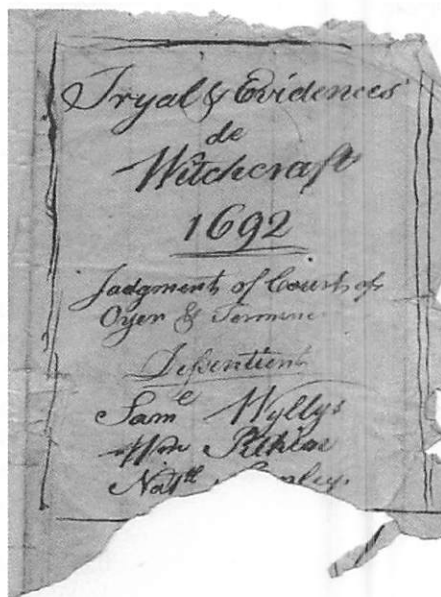 Tryal & Evidences
de
Witchcraft
1692
Judgment of Court of
Oyer &
Dissentient
Sam^e Wyllys
Wm Pitkin
Nat^ll